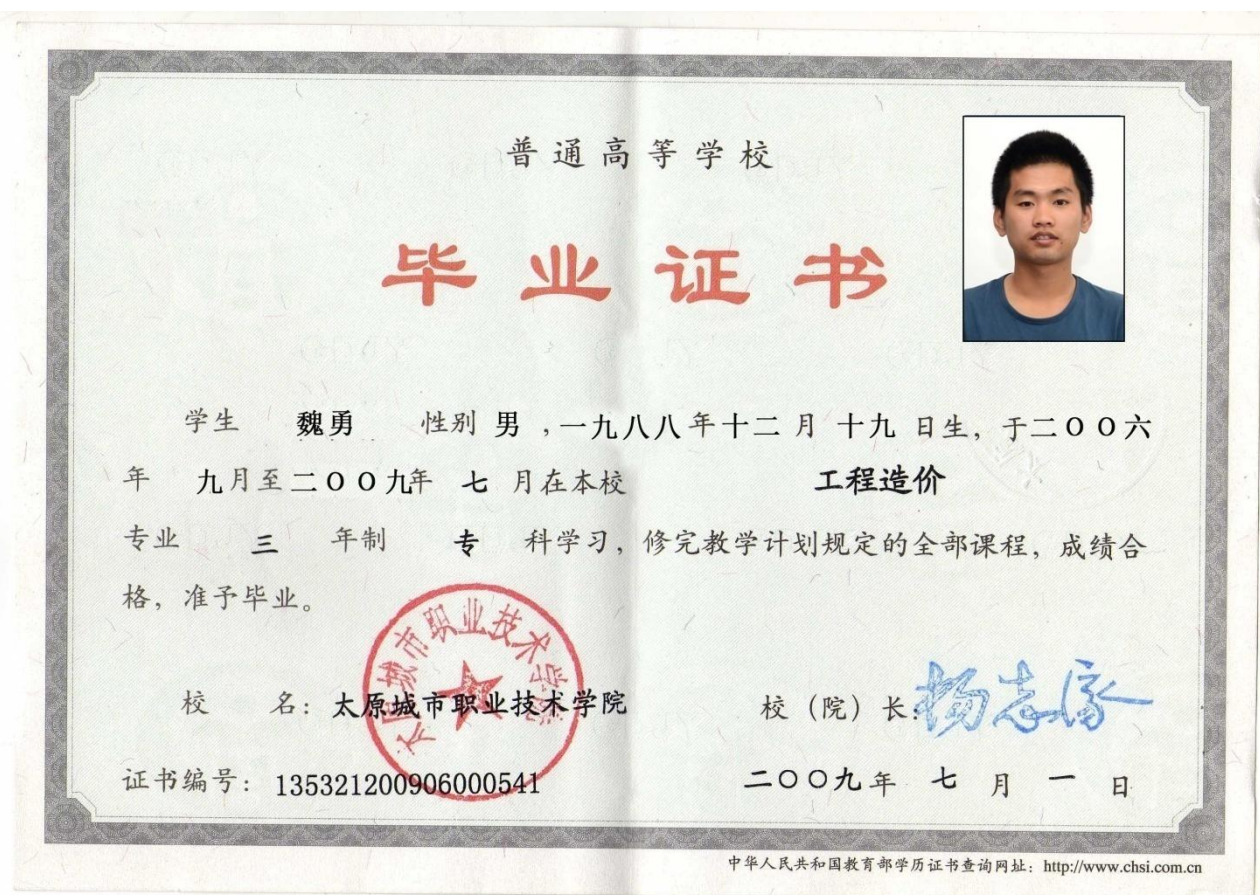 普通高等学校
毕业证书
学生 魏勇 性别 男,一九八八年十二月十九日生,于二〇〇六
年 九月至二〇〇九年 七 月在本校 工程造价
专业 三 年制 专 科学习,修完教学计划规定的全部课程,成绩合
格,准予毕业。
太原城市职业技术学院
校 名:太原城市职业技术学院 校(院)长:
证书编号:135321200906000541 二〇〇九年 七 月 一 日
中华人民共和国教育部学历证书查询网址:http://www.chsi.com.cn